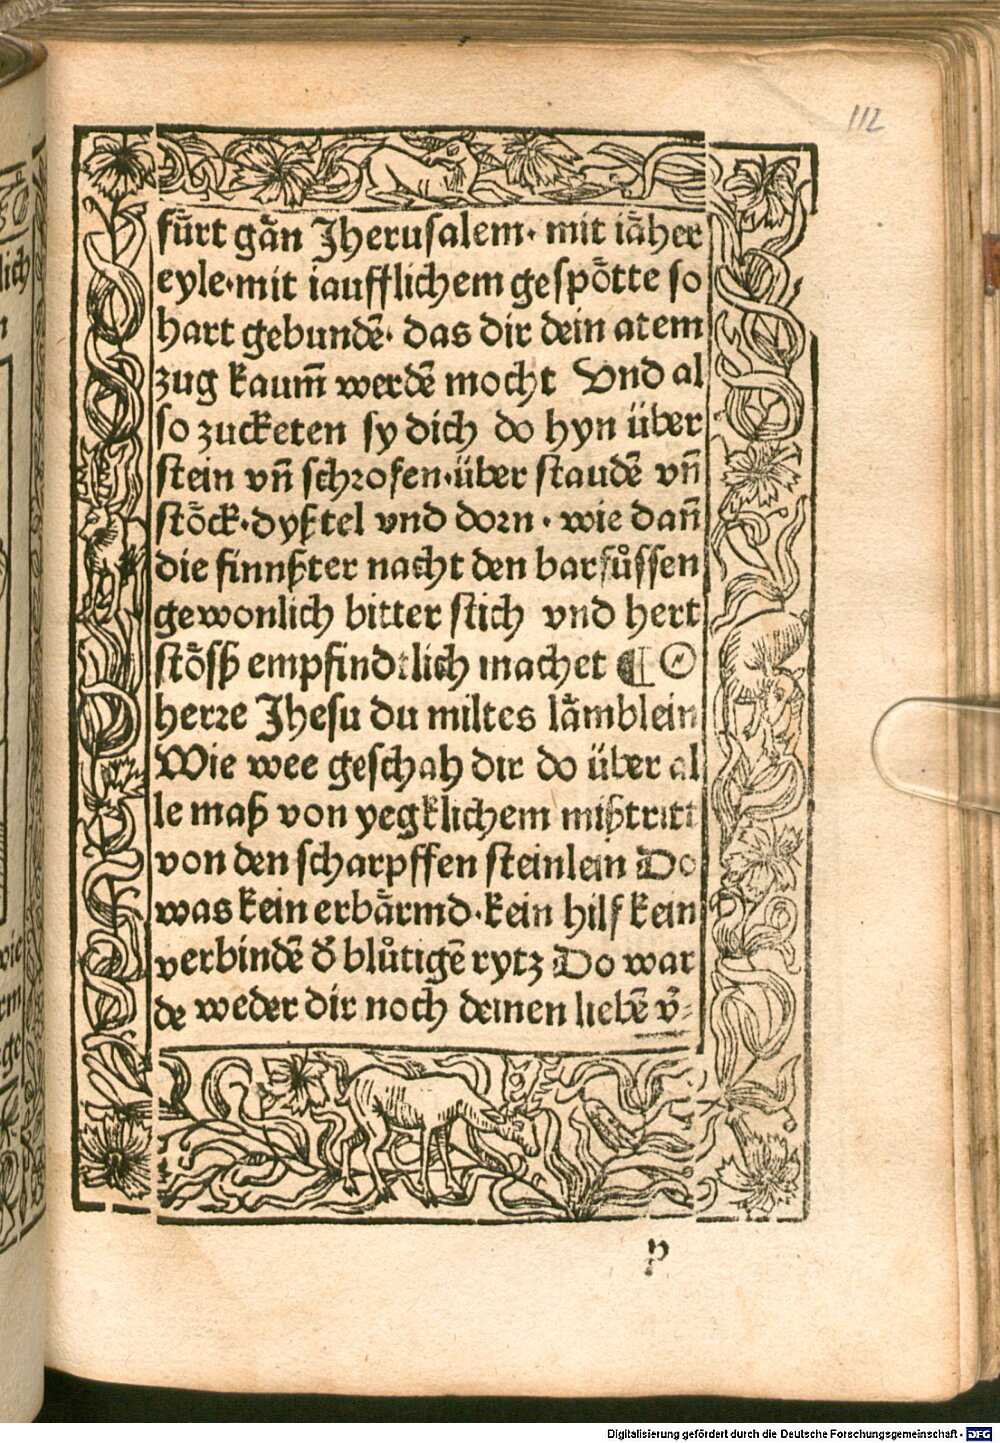 112
fu̎rt ga̎n Jherusalem· mit ia̎her
eyle·mit iaufflichem gespo̎tte so
hart gebundē· das dir dein atem
zug kaum̄ werdē mocht Vnd al
so zucketen sy dich do hyn über
stein vn̄ schrofen·über staudē vn̄
sto̎ck·dyßtel vnd dorn · wie dan̄
die finnßter nacht den barfůssen
gewonlich bitter stich vnd hert
sto̎sß empfindtlich machet ¶ O
herre Jhesu du miltes la̎mblein
Wie wee geschah dir do über al
le maß von yegklichem mißtritt
von den scharpffen steinlein Do
was kein erba̎rmd·kein hilf kein
verbindē d̕ blůtigē rytz Do war
de weder dir noch deinen liebē v̕⸗
p
Digitalisierung gefördert durch die Deutsche Forschungsgemeinschaft - DFG